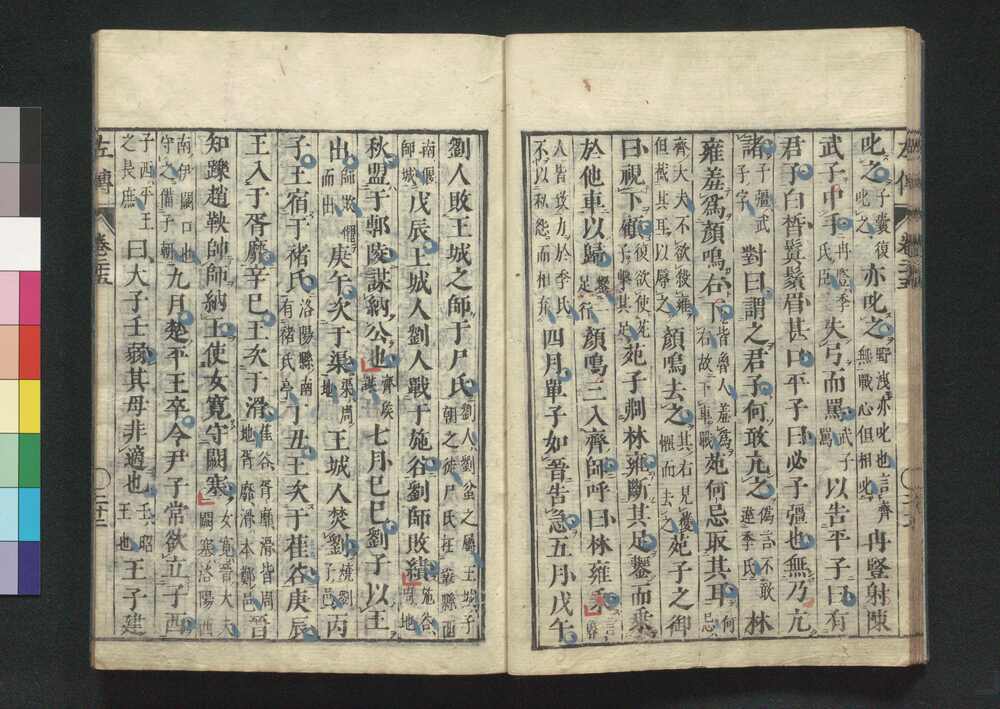 叱之子囊復叱之亦叱之野洩亦叱也言齊無戰心但相叱冉豎射陳
武子中手冉豎季氏臣失弓而罵武子罵以告平子曰有
君子白皙鬒鬚眉甚口平子曰必子彊也無乃亢
諸子彊武子字對曰謂之君子何敢亢之偽言不敢違季氏林
雍羞爲顏鳴右下皆魯人羞爲右故下車戰苑何忌取其耳何忌
齊大夫不欲殺雍但截其耳以辱之顏鳴去之其右見獲懼而去之苑子之御
曰視下顧復欲使苑子擊其足苑子刜林雍斷其足鑋而乘
於他車以歸鑋一足行顏鳴三入齊師呼曰林雍乘言魯
人皆致力於季氏不以私怨而相棄四月單子如晉告急五月戊午
劉人敗王城之師于尸氏劉人劉蚠之屬王城子朝之徒尸氏在鞏縣西
南偃師城戊辰王城人劉人戰于施谷劉師敗績施谷周地
秋盟于鄟陵謀納公也齊侯謀七月己巳劉子以王
出師敗懼而出庚午次于渠渠周地王城人焚劉燒劉子邑丙
子王宿于褚氏洛陽縣南有褚氏亭丁丑王次于萑谷庚辰
王入于胥靡辛巳王次于滑萑谷胥靡滑皆周地胥靡滑本鄭邑晉
知躒趙鞅帥師納王使女寬守闕塞女寬晉大夫闕塞洛陽西
南伊闕口也守之備子朝九月楚平王卒令尹子常欲立子西
子西平王之長庶曰大子壬弱其母非適也壬昭王也王子建
左傳 卷廿五 二十二